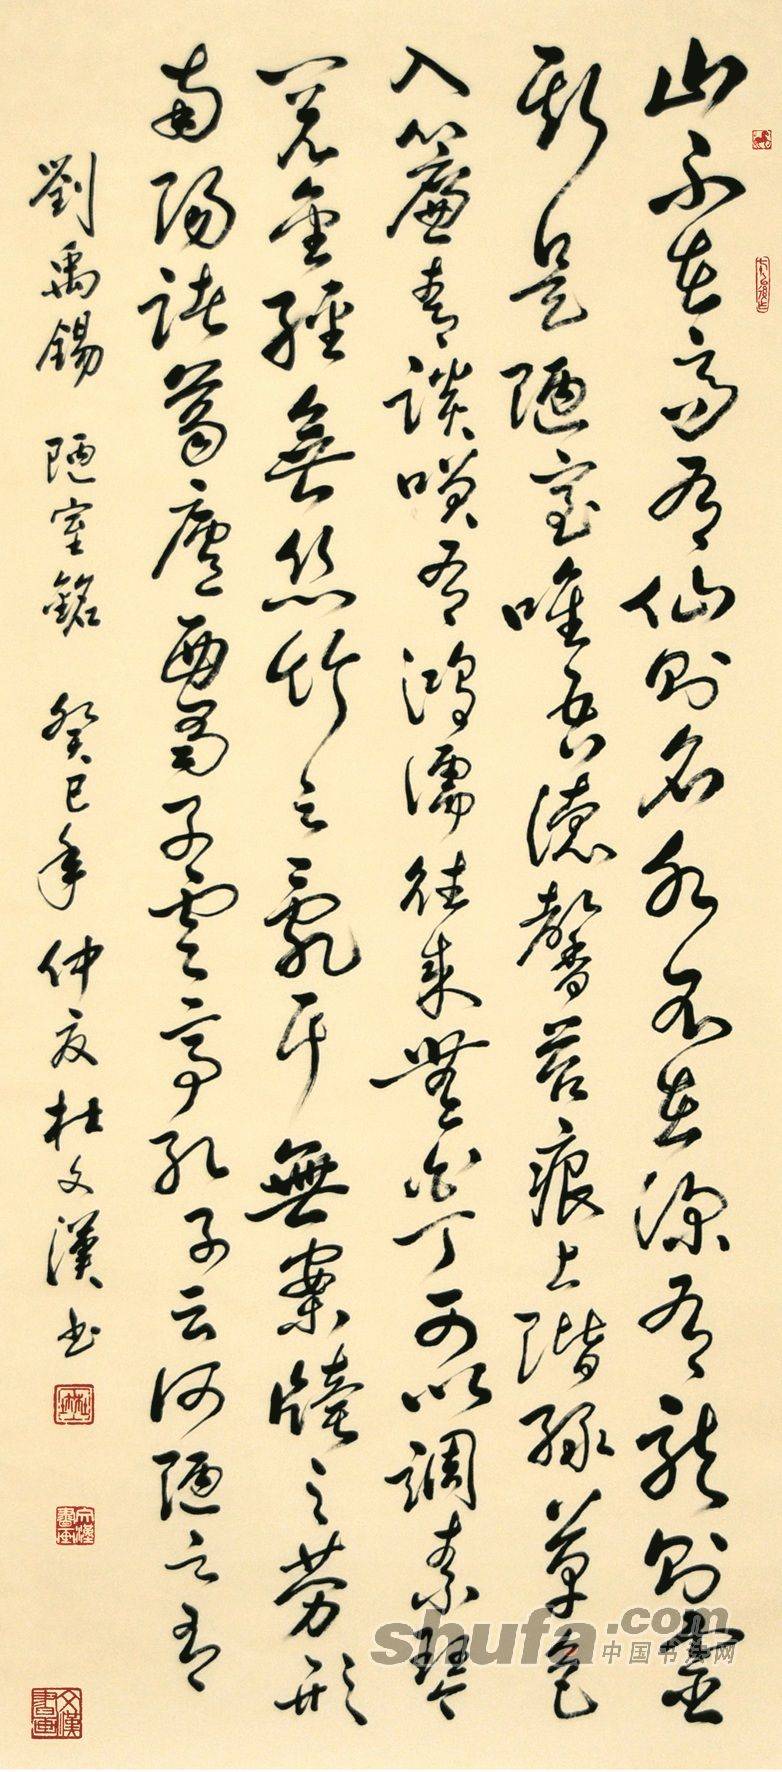 山不在高有仙則名水不在深有龍則靈
斯是陋室唯吾德馨苔痕上階緑草色
入簾青談咲有鴻濡往来無白丁可以調素琴
閱金經無絲竹之亂耳無案牘之勞形
南陽諸葛廬西蜀子雲亭孔子云何陋之有
劉禹錫 陋室銘 癸巳年仲夏杜文漢书
文漢書画
文漢書画
shufa.com
中国书法网